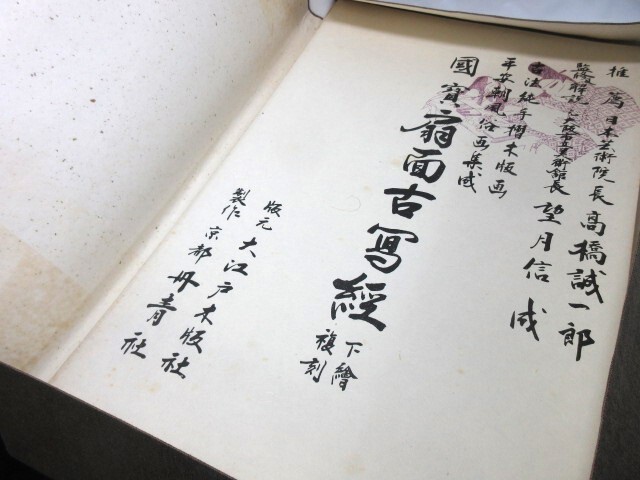 推薦 日本芸術院長 高橋誠一郎
監修解説 大阪市立美術館長 望月信成
古法純手摺木版画
平安朝風俗画集成
國寳 扇面古写經 下繪複刻
版元 大江戸木版社
製作 京都丹青社